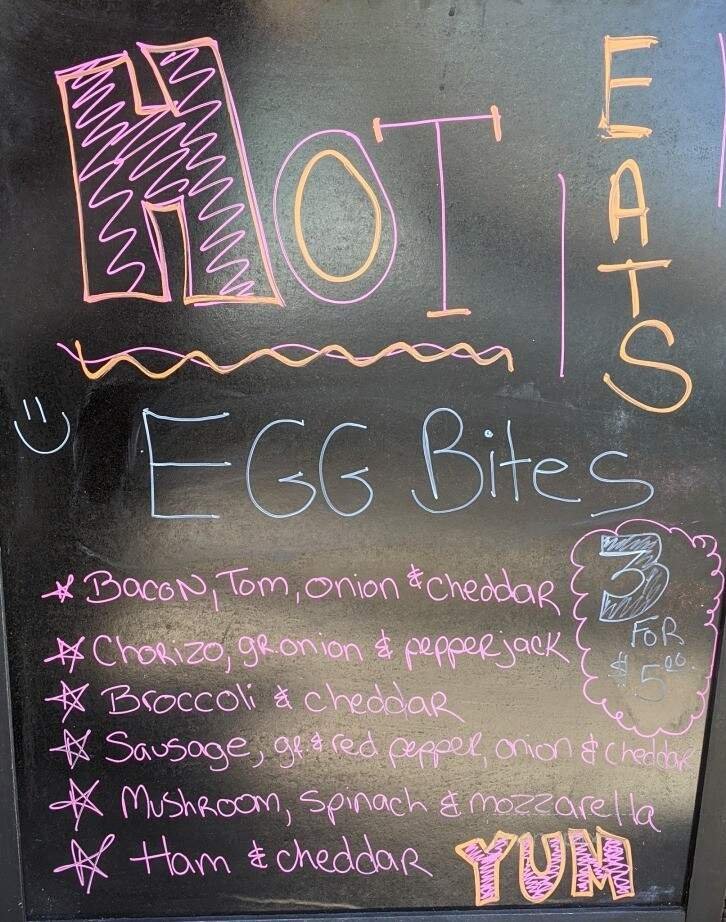 HOT
EATS
EGG Bites
Bacon, Tom, onion & cheddar
Chorizo, gr. onion & pepper jack
Broccoli & cheddar
Sausage, gr & red pepper, onion & cheddar
Mushroom, spinach & mozzarella
Ham & cheddar
3
FOR
$5.00
YUM